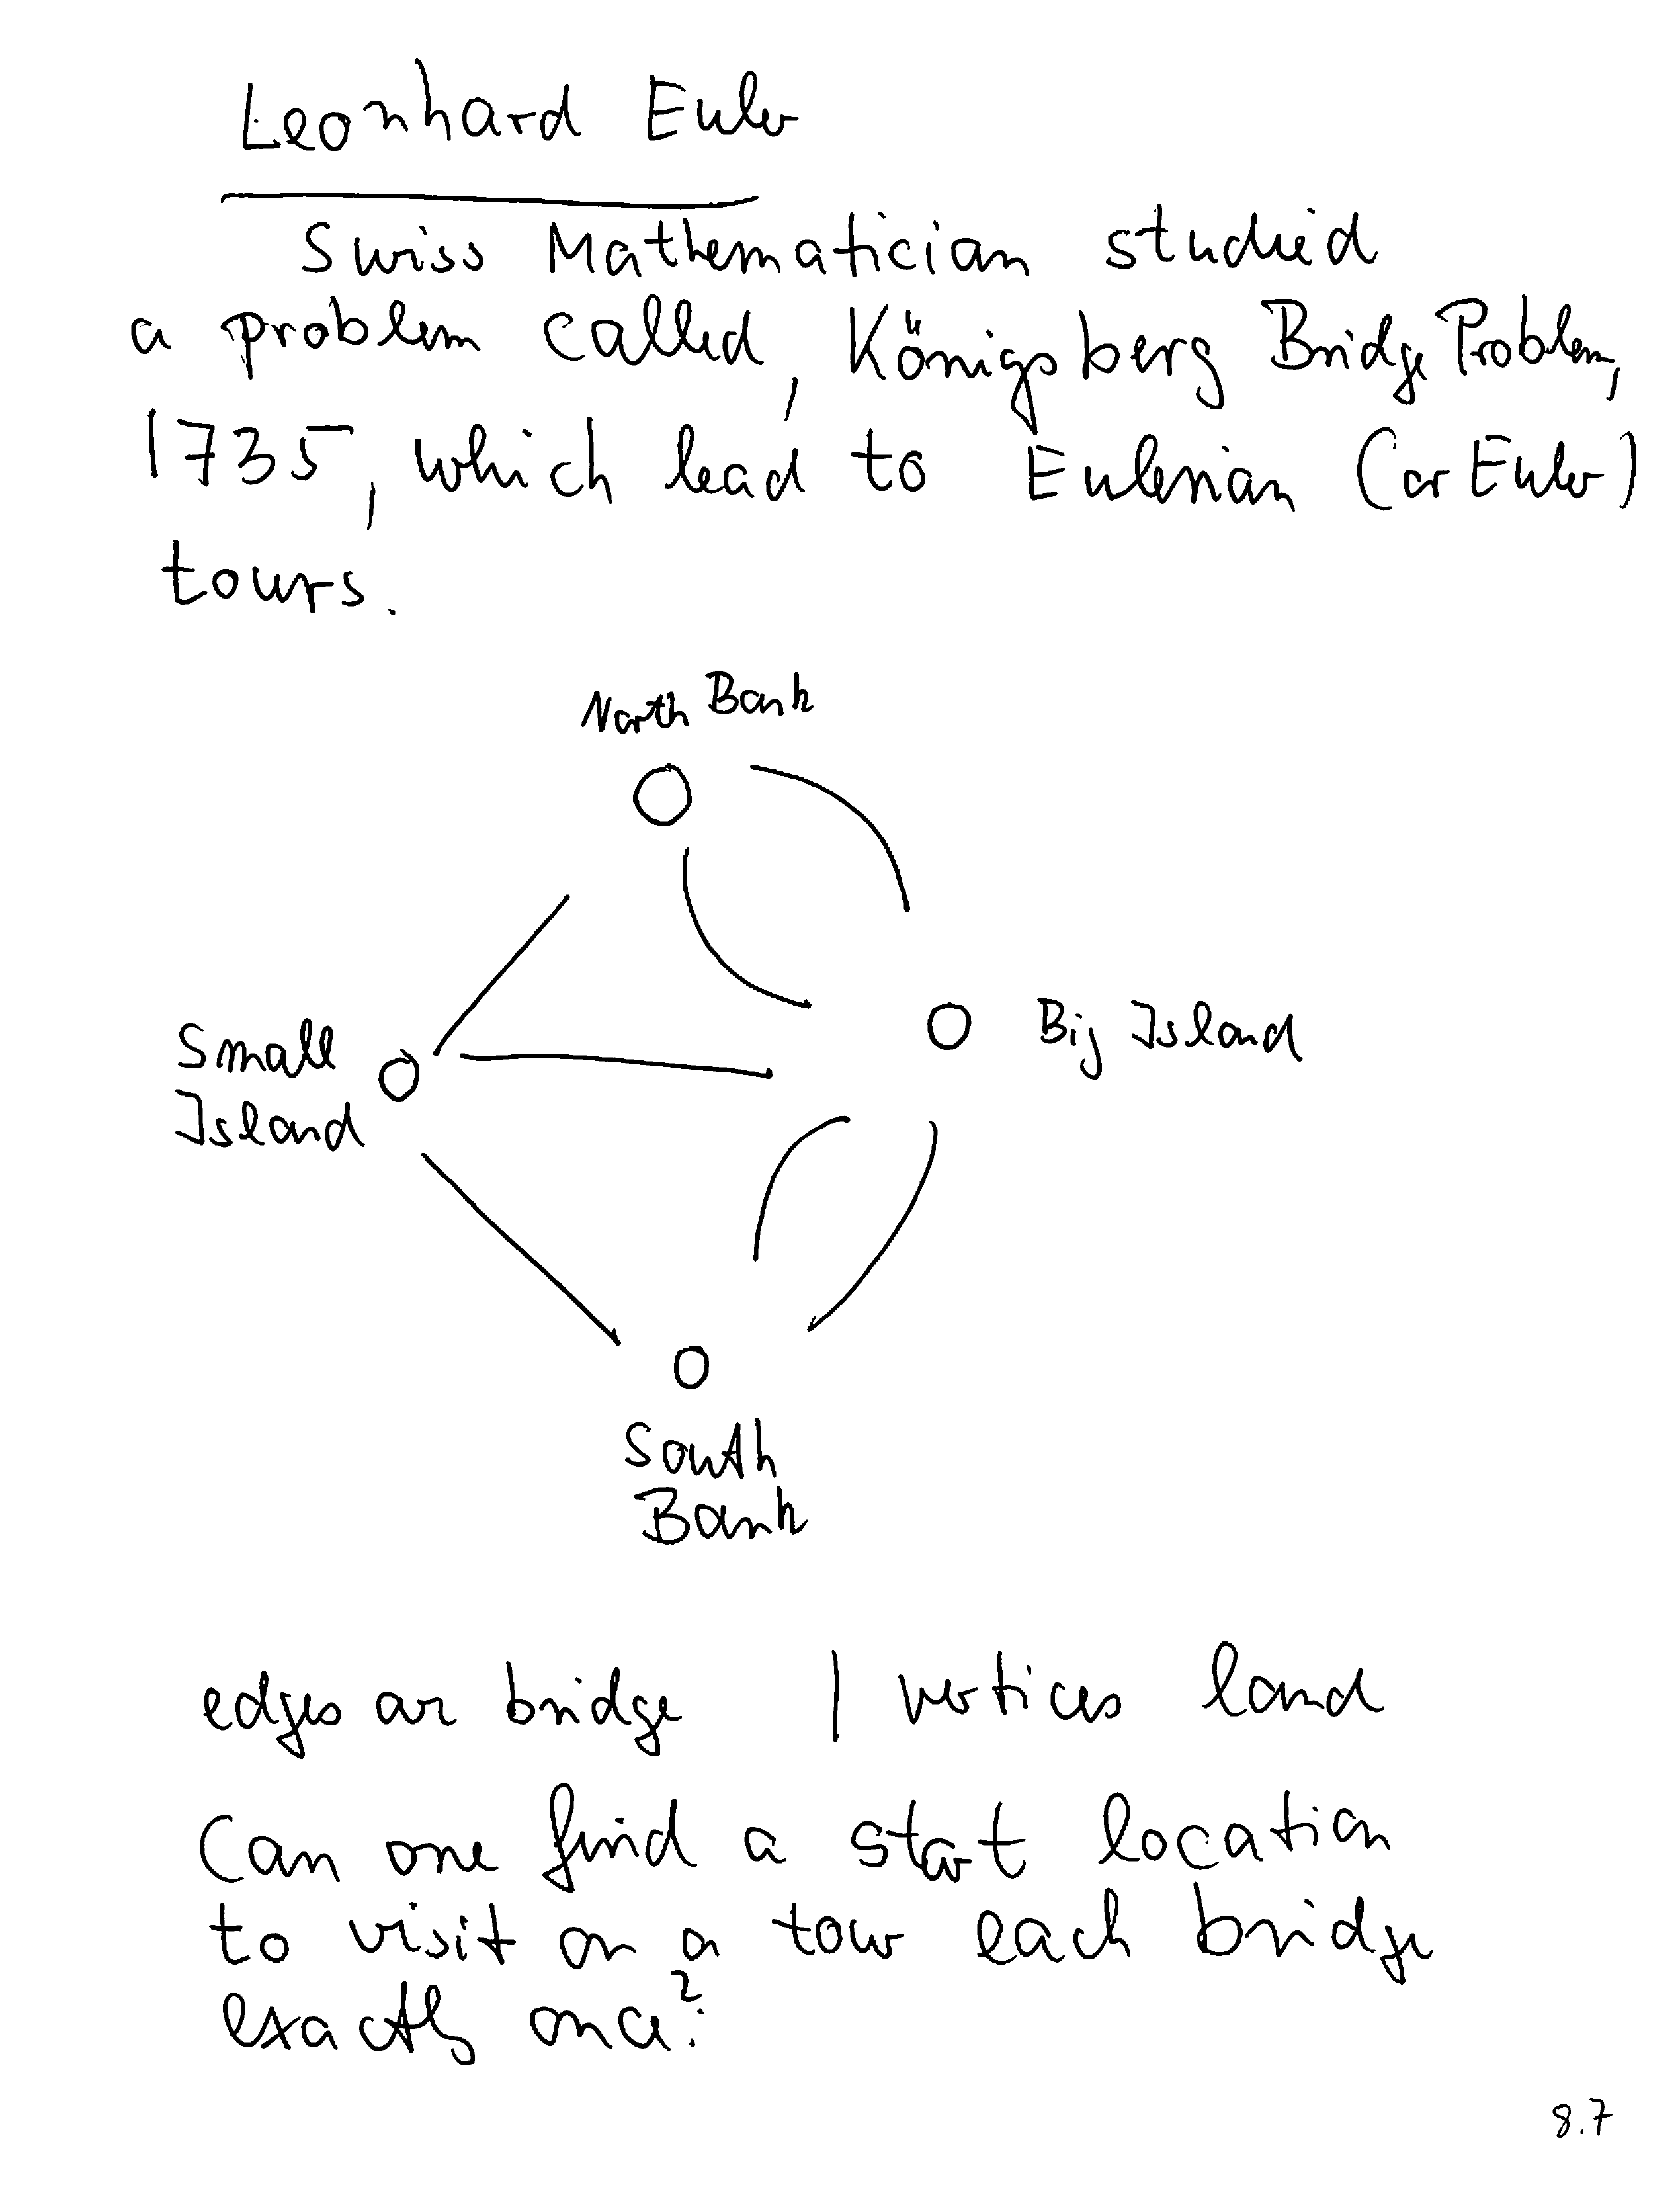 Leonhard Euler
Swiss Mathematician studied
a problem called, Königsberg Bridge Problem,
1735, which lead to Eulerian (or Euler)
tours.
North Bank
Big Island
Small
Island
South
Bank
edges are bridge | vertices land
Can one find a start location
to visit on a tour each bridge
exactly once?
8.7